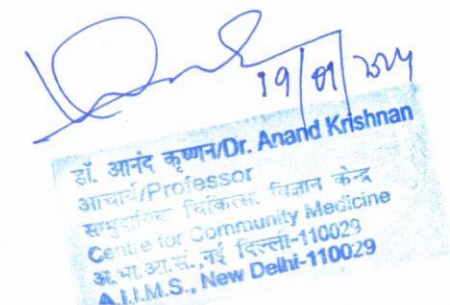 19/01/2024
डॉ. आनंद कृष्णन/Dr. Anand Krishnan
आचार्य/Professor
सामुदायिक चिकित्सा विज्ञान केन्द्र
Centre for Community Medicine
अ.भा.आ.सं.,नई दिल्ली-110029
A.I.I.M.S., New Delhi-110029